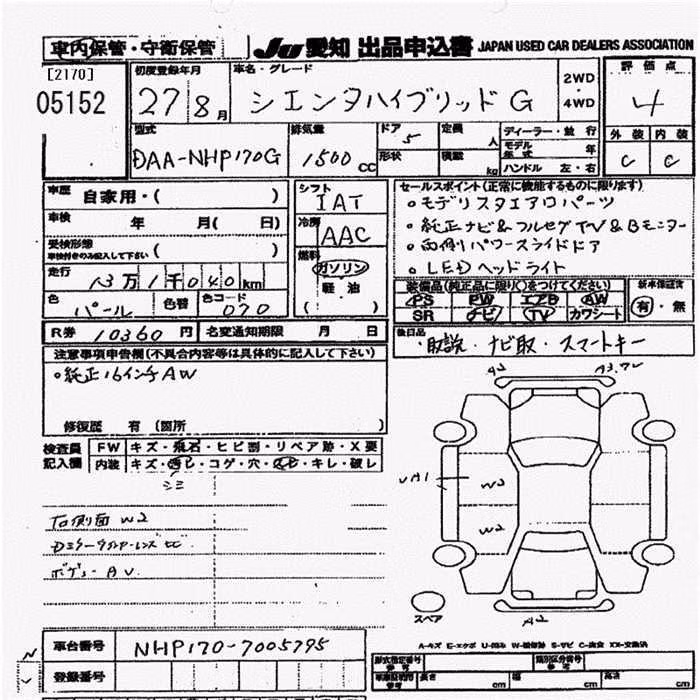 車内保管・守衛保管 JU 愛知 出品申込書 JAPAN USED CAR DEALERS ASSOCIATION
[2170]
05152
初度登録年月 車名・グレード 2WD ・ 4WD 評価点
27 8月 シエンタハイブリッド G 4
型式 排気量 ドア 定員 人 ディーラー・並行 外装 内装
DAA-NHP170G 1500 CC 5 形状 積載 kg モデル年式 年 C C
ハンドル 左・右
車歴 自家用・( )
車検 年 月( 日)
受検形態 ( )
車検付きのみ記入して下さい
走行 13万1千040km
色 パール 色替 色コード 070
シフト IAT
冷房 AAC
燃料 ガソリン
軽油
( )
セールスポイント(正常に機能するものに限ります)
・モデリスタエアロパーツ
・純正ナビ&フルセグTV&Bモニター
・両側パワースライドドア
・LEDヘッドライト
装備品(純正品に限り)に○をつけてください 新車保証書
PS PW エアB AW 有・無
SR ナビ TV カワシート
R券 10360円 名変通知期限 月 日
後日品
・取説・ナビ取・スマートキー
注意事項申告欄(不具合内容等は具体的に記入して下さい)
・純正16インチAW
修復歴 有 (箇所
検査員 記入欄 FW キズ・飛石・ヒビ割・リペア跡・X要
内装 キズ・汚レ・コゲ・穴・スレ・キレ・破レ
シミ
右側面 W2
A2
W2
W2
A2
スペア
車台番号 NHP170-7005795
A-キズ E-エクボ U-凹み W-補修跡 S-サビ C-腐食 XX-交換済
登録番号
型式指定番号 参考 類別区分番号 参考
車両証明用 参考 長さ cm 幅 cm 高さ cm